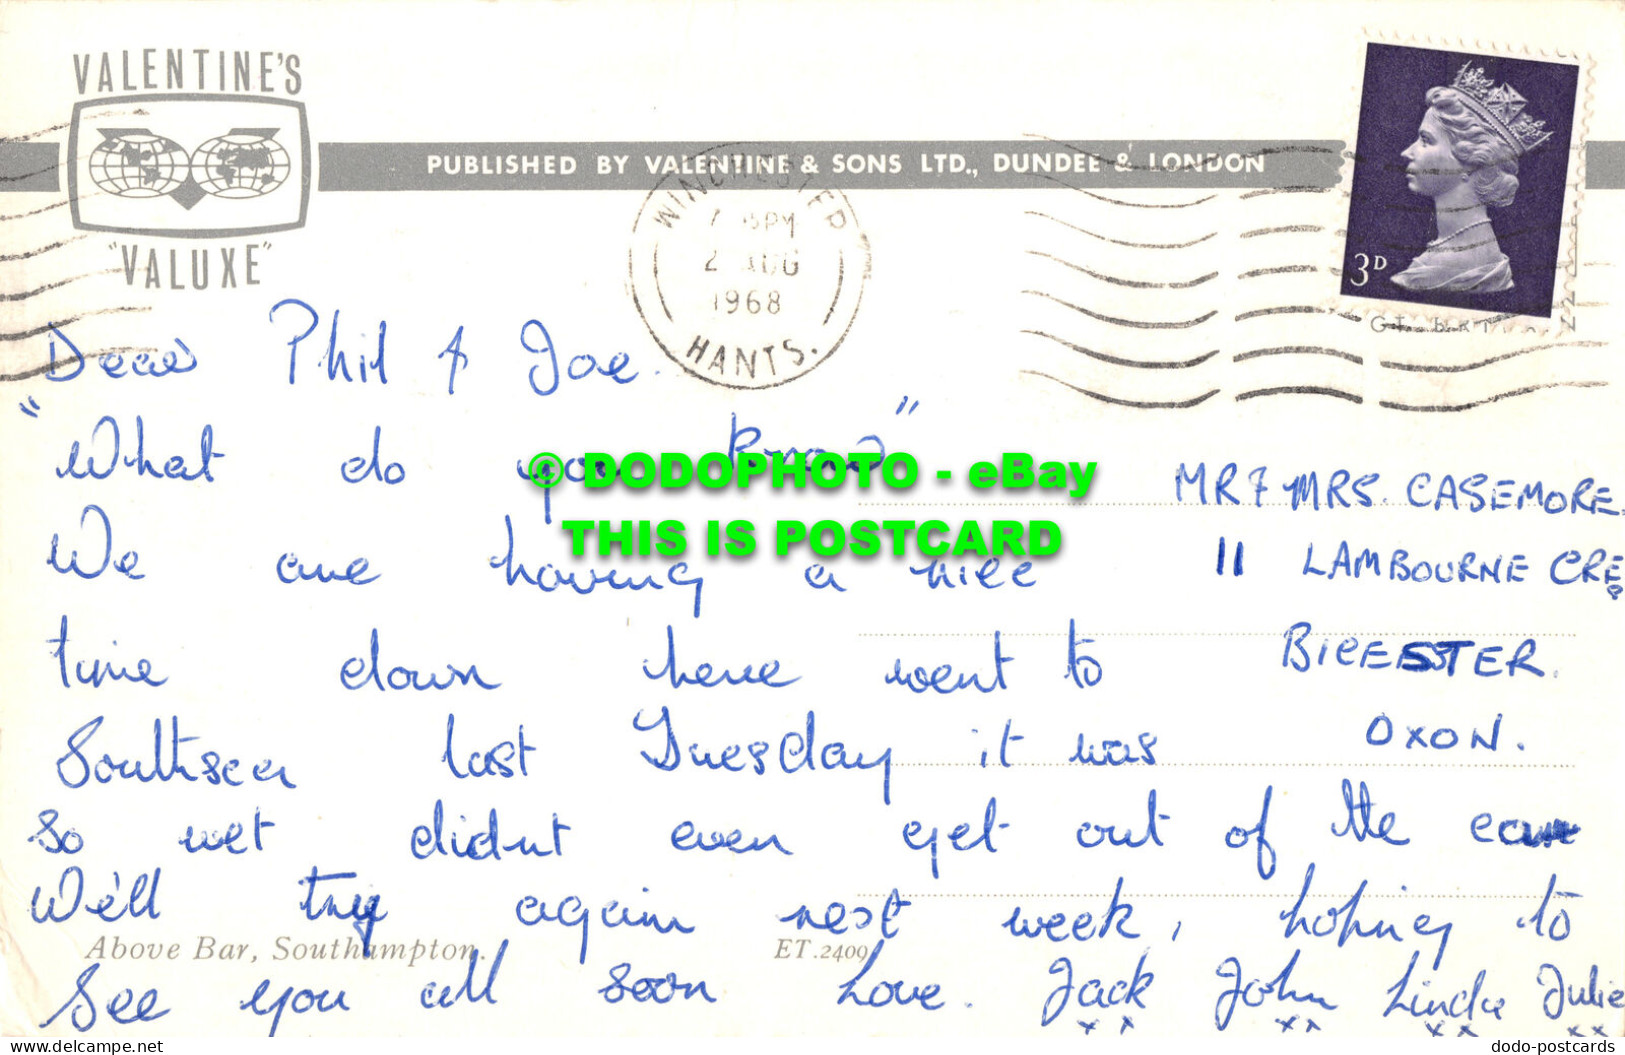 VALENTINE'S
"VALUXE"
PUBLISHED BY VALENTINE & SONS LTD., DUNDEE & LONDON
WINCHESTER
PM
2 AUG
1968
HANTS.
3D
Dear Phil & Joe.
"What do you know"
We are having a nice
time down here went to
Southsea last Tuesday it was
so wet didnt even get out of the car
We'll try again next week, hoping to
see you all soon love. Jack John Linda Julie
xx xx xx xx
MR & MRS. CASEMORE.
11 LAMBOURNE CRE
BICESTER.
OXON.
Above Bar, Southampton.
ET.2409
© DODOPHOTO - eBay
THIS IS POSTCARD
www.delcampe.net
dodo-postcards